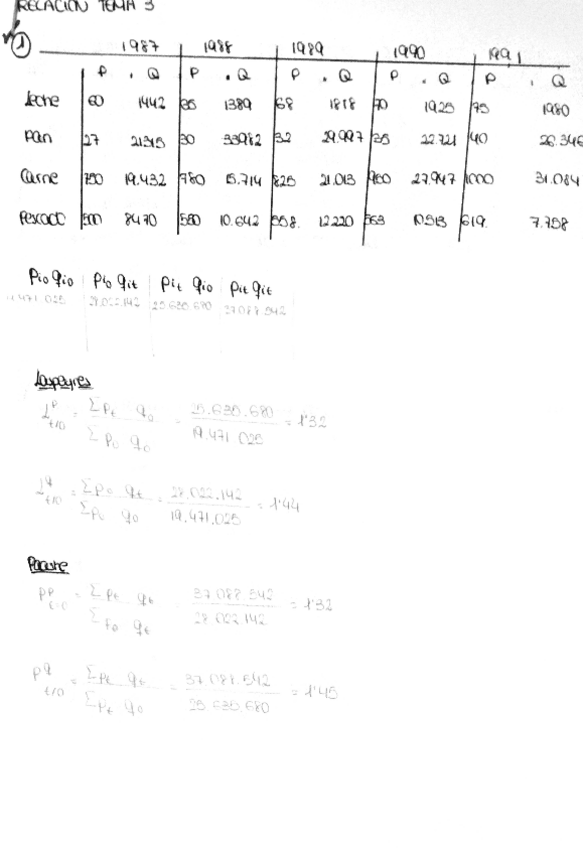 RELACIÓN TEMA 3
1 1987 1988 1989 1990 1991
P . Q P . Q P . Q P . Q P . Q
leche 60 1442 65 1389 68 1818 70 1925 75 1980
Pan 27 21315 30 33982 32 29.997 35 22.721 40 26.346
Carne 750 19.432 780 15.714 825 21.013 900 27.947 1000 31.084
Pescado 500 8470 550 10.642 558. 12220 563 10513 619. 7.758
Pio qio Pio qit Pit qio Pit qit
19.471.025 28.022.142 25.635.680 37.088.542
Laspeyres
L^p t/0 = ΣPt q0 / ΣPo q0 = 25.635.680 / 19.471.025 = 1'32
L^q t/0 = ΣPo qt / ΣPo q0 = 28.022.142 / 19.471.025 = 1'44
Paasche
P^p t/0 = ΣPt qt / ΣPo qt = 37.088.542 / 28.022.142 = 1'32
P^q t/0 = ΣPt qt / ΣPt q0 = 37.088.542 / 25.635.680 = 1'45